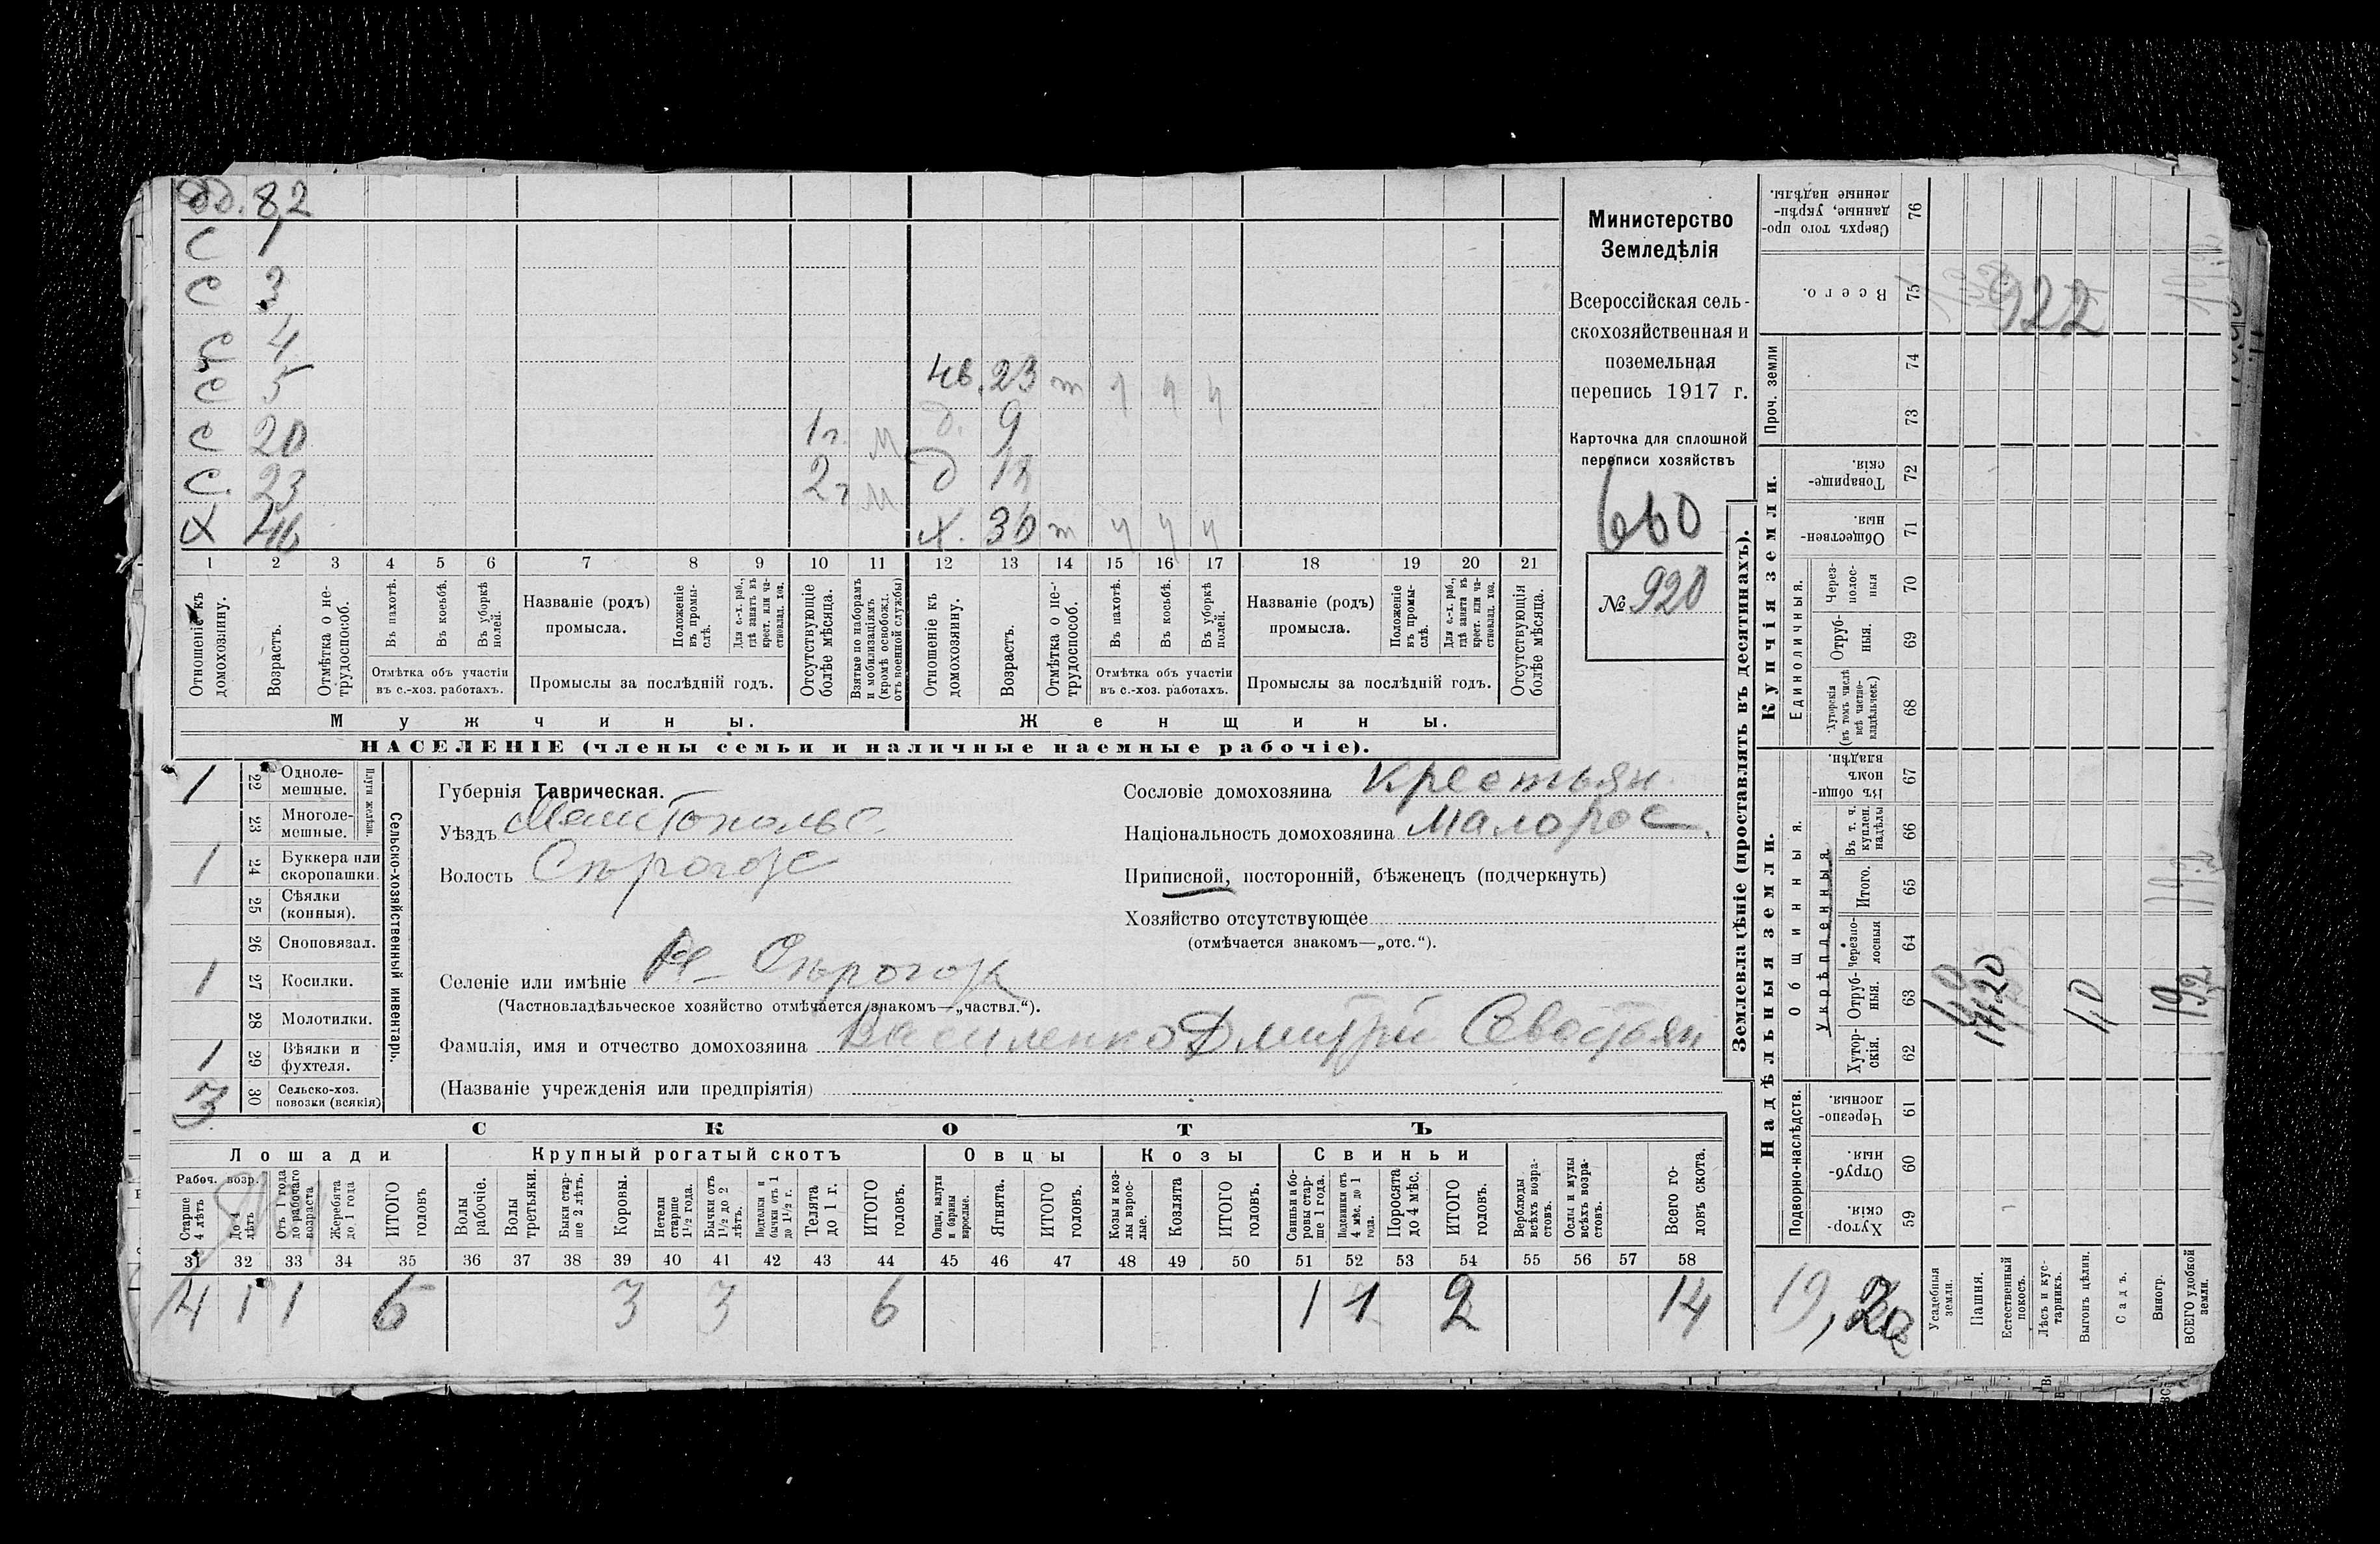 82
С 1
С 3
С 4
С 5 нв. 23 т ч ч ч
С 20 1 г. м д. 9
С. 23 2 г м д 13
Х 46 Х. 30 т ч ч ч
1 2 3 4 5 6 7 8 9 10 11 12 13 14 15 16 17 18 19 20 21
Отношеніе къ домохозяину.
Возрастъ.
Отмѣтка о не-трудоспособ.
Въ пахотѣ.
Въ косьбѣ.
Въ уборкѣ полей.
Отмѣтка объ участіи въ с.-хоз. работахъ.
Названіе (родъ) промысла.
Положеніе въ промы-слѣ.
Для с.-х. раб., гдѣ занятъ въ крест. или ча-стновлад. хоз.
Промыслы за послѣдній годъ.
Отсутствующіе болѣе мѣсяца.
Взятые по наборамъ и мобилизаціямъ (кромѣ освобожд. отъ военной службы)
Отношеніе къ домохозяину.
Возрастъ.
Отмѣтка о не-трудоспособ.
Въ пахотѣ.
Въ косьбѣ.
Въ уборкѣ полей.
Отмѣтка объ участіи въ с.-хоз. работахъ.
Названіе (родъ) промысла.
Положеніе въ промы-слѣ.
Для с.-х. раб., гдѣ занята въ крест. или ча-стновлад. хоз.
Промыслы за послѣдній годъ.
Отсутствующія болѣе мѣсяца.
Мужчины. Женщины.
НАСЕЛЕНІЕ (члены семьи и наличные наемные рабочіе).
Министерство
Земледѣлія
Всероссійская сель-
скохозяйственная и
поземельная
перепись 1917 г.
Карточка для сплошной
переписи хозяйствъ
660
№ 920
Сельско-хозяйственный инвентарь.
Плуги желѣзн.
1 22 Одноле-мешные.
23 Многоле-мешные.
1 24 Буккера или скоропашки.
25 Сѣялки (конныя).
26 Сноповязал.
1 27 Косилки.
28 Молотилки.
1 29 Вѣялки и фухтеля.
3 30 Сельско-хоз. повозки (всякія)
Губернія Таврическая.
Уѣздъ Мелитопольс.
Волость Сѣрогоз
Селеніе или имѣніе Сѣрогоз
(Частновладѣльческое хозяйство отмѣчается знакомъ—„частвл.“).
Фамилія, имя и отчество домохозяина Василенко Дмитрій Севостьян
(Названіе учрежденія или предпріятія)
Сословіе домохозяина Крестьян.
Національность домохозяина Малорос.
Приписной, посторонній, бѣженецъ (подчеркнуть)
Хозяйство отсутствующее
(отмѣчается знакомъ—„отс.“).
СКОТЪ
Лошади Крупный рогатый скотъ Овцы Козы Свиньи
Рабоч. возр.
Старше 4 лѣтъ
До 4 лѣтъ
Отъ 1 года до рабочаго возраста
Жеребята до 1 года
ИТОГО головъ
Волы рабочіе.
Волы третьяки.
Быки стар-ше 2 лѣтъ.
Коровы.
Нетели старше 1½ года.
Бычки отъ 1½ до 2 лѣтъ.
Подтелки и бычки отъ 1 до 1½ г.
Телята до 1 г.
ИТОГО головъ.
Овцы, валухи и бараны взрослые.
Ягнята.
ИТОГО головъ.
Козы и коз-лы взрос-лые.
Козлята
ИТОГО головъ.
Свиньи и бо-ровы стар-ше 1 года.
Подсвинки отъ 4 мѣс. до 1 года.
Поросята до 4 мѣс.
ИТОГО головъ.
Верблюды всѣхъ возра-стовъ.
Ослы и мулы всѣхъ возра-стовъ.
Всего го-ловъ скота.
31 32 33 34 35 36 37 38 39 40 41 42 43 44 45 46 47 48 49 50 51 52 53 54 55 56 57 58
4 1 1 6 3 3 6 1 1 2 14
Землевладѣніе (проставлять въ десятинахъ).
Надѣльныя земли. Купчія земли. Проч. земли
Подворно-наслѣдств.
Общинныя.
Укрѣпленныя
Единоличныя.
Хутор-скія. 59
Отруб-ныя. 60
Черезпо-лосныя. 61
Хутор-скія. 62
Отруб-ныя. 63
Черезпо-лосныя 64
Итого. 65
Въ т. ч. куплен. надѣлы 66
Въ общи-номъ владѣн. 67
Хуторскія (въ томъ числѣ всѣ частно-владѣльческ.) 68
Отруб-ныя. 69
Через-полос-ныя 70
Обществен-ныя. 71
Товарище-скія. 72
73
74
Всего. 75
Сверхъ того про-данные, укрѣп-ленные надѣлы. 76
Усадебныя земли.
Пашня.
Естественный покосъ.
Лѣсъ и кус-тарникъ.
Выгонъ цѣлин.
Садъ.
Виногр.
ВСЕГО удобной земли.
922
1,0
17,20
1,0
19,2